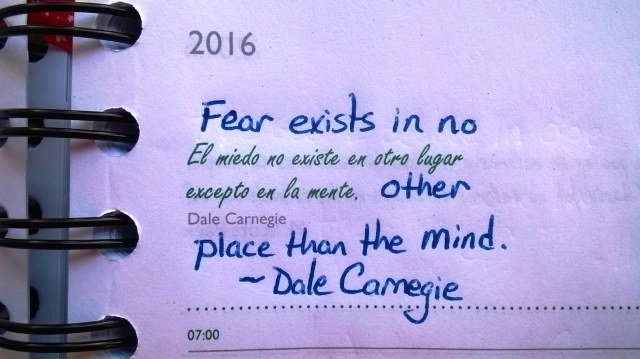 2016
Fear exists in no
El miedo no existe en otro lugar
excepto en la mente. other
Dale Carnegie
place than the mind.
~ Dale Carnegie
07:00